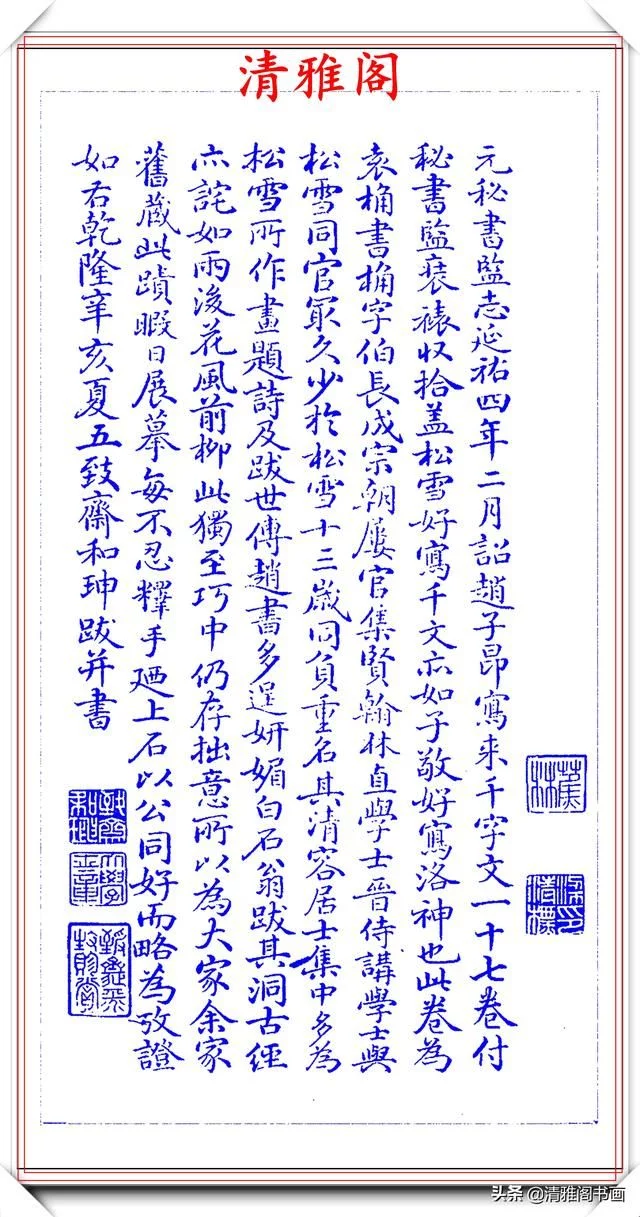 清雅阁
元秘書監志延祐四年二月詔趙子昂寫来千字文一十七卷付
秘書監裝裱収拾盖松雪好寫千文亦如子敬好寫洛神也此卷為
袁桷書桷字伯長成宗朝屢官集賢翰林直學士晉侍講學士與
松雪同官冣久少於松雪十三歲同負重名其清容居士集中多為
松雪所作畫題詩及跋世傳趙書多逞妍媚白石翁跋其洞古經
亦詫如雨後花風前柳此獨至巧中仍存拙意所以為大家余家
舊蔵此蹟暇日展摹每不忍釋手廼上石以公同好而略為攷證
如右乾隆辛亥夏五致齋和珅跋并書
头条@清雅阁书画